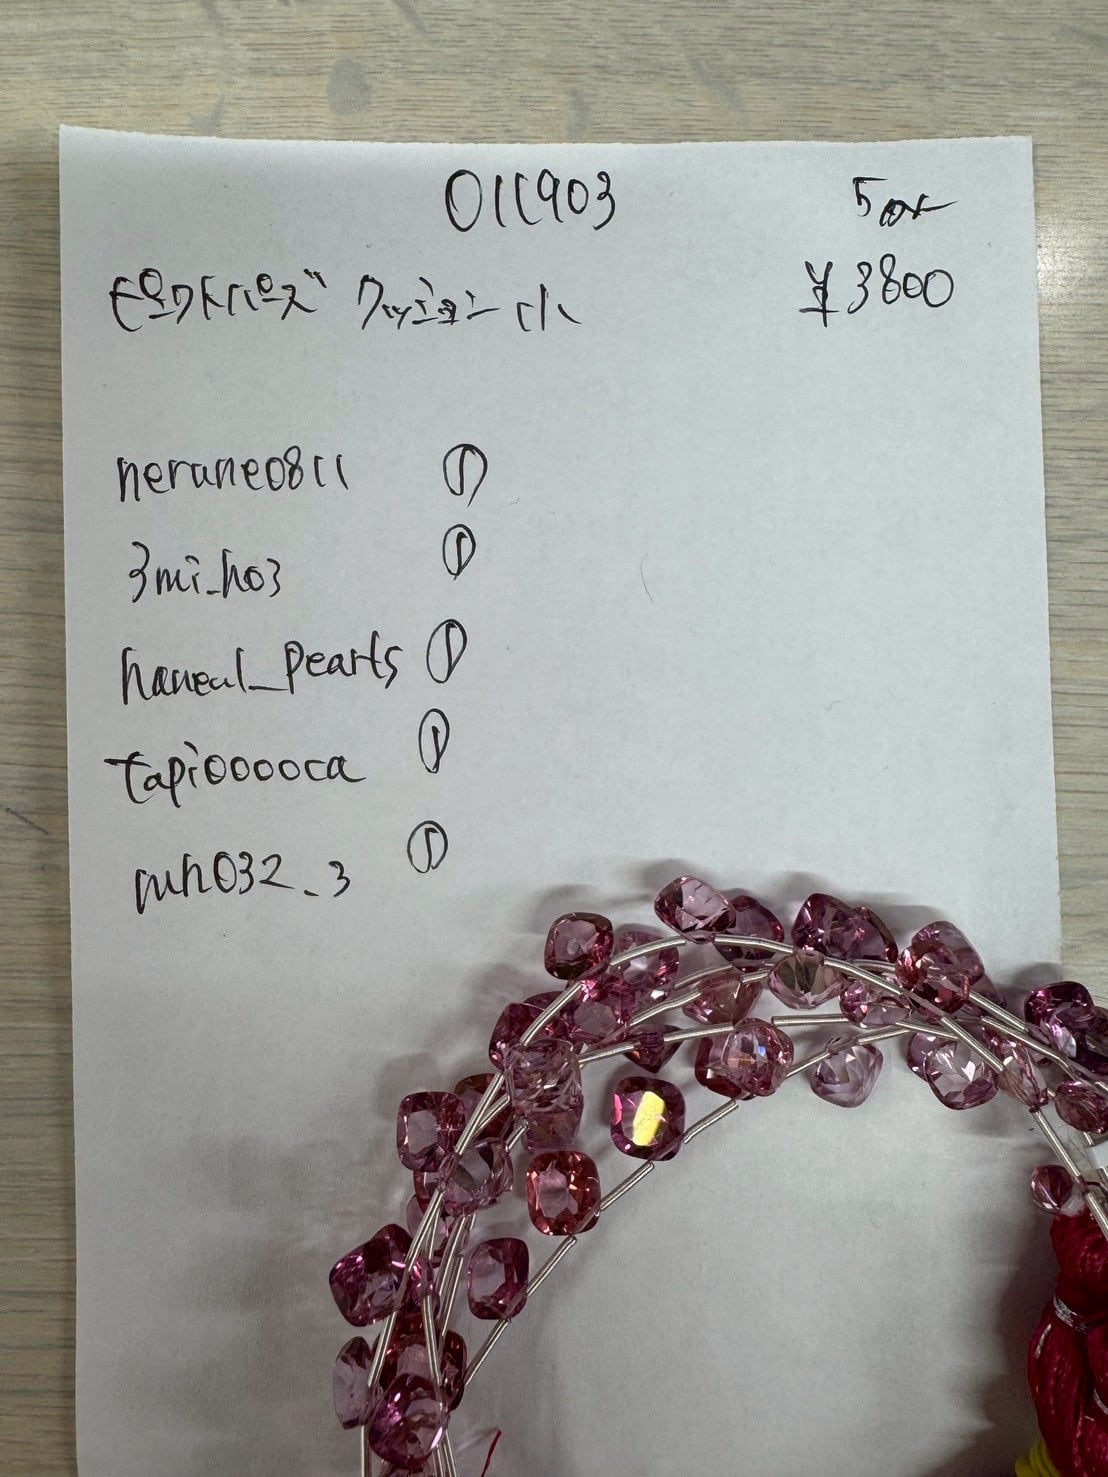 011903
ピンクトパーズ クッション 小
¥3800
nerune0811 ①
3mi_ho3 ①
haneul_pearls ①
tapiooooca ①
mh032_3 ①